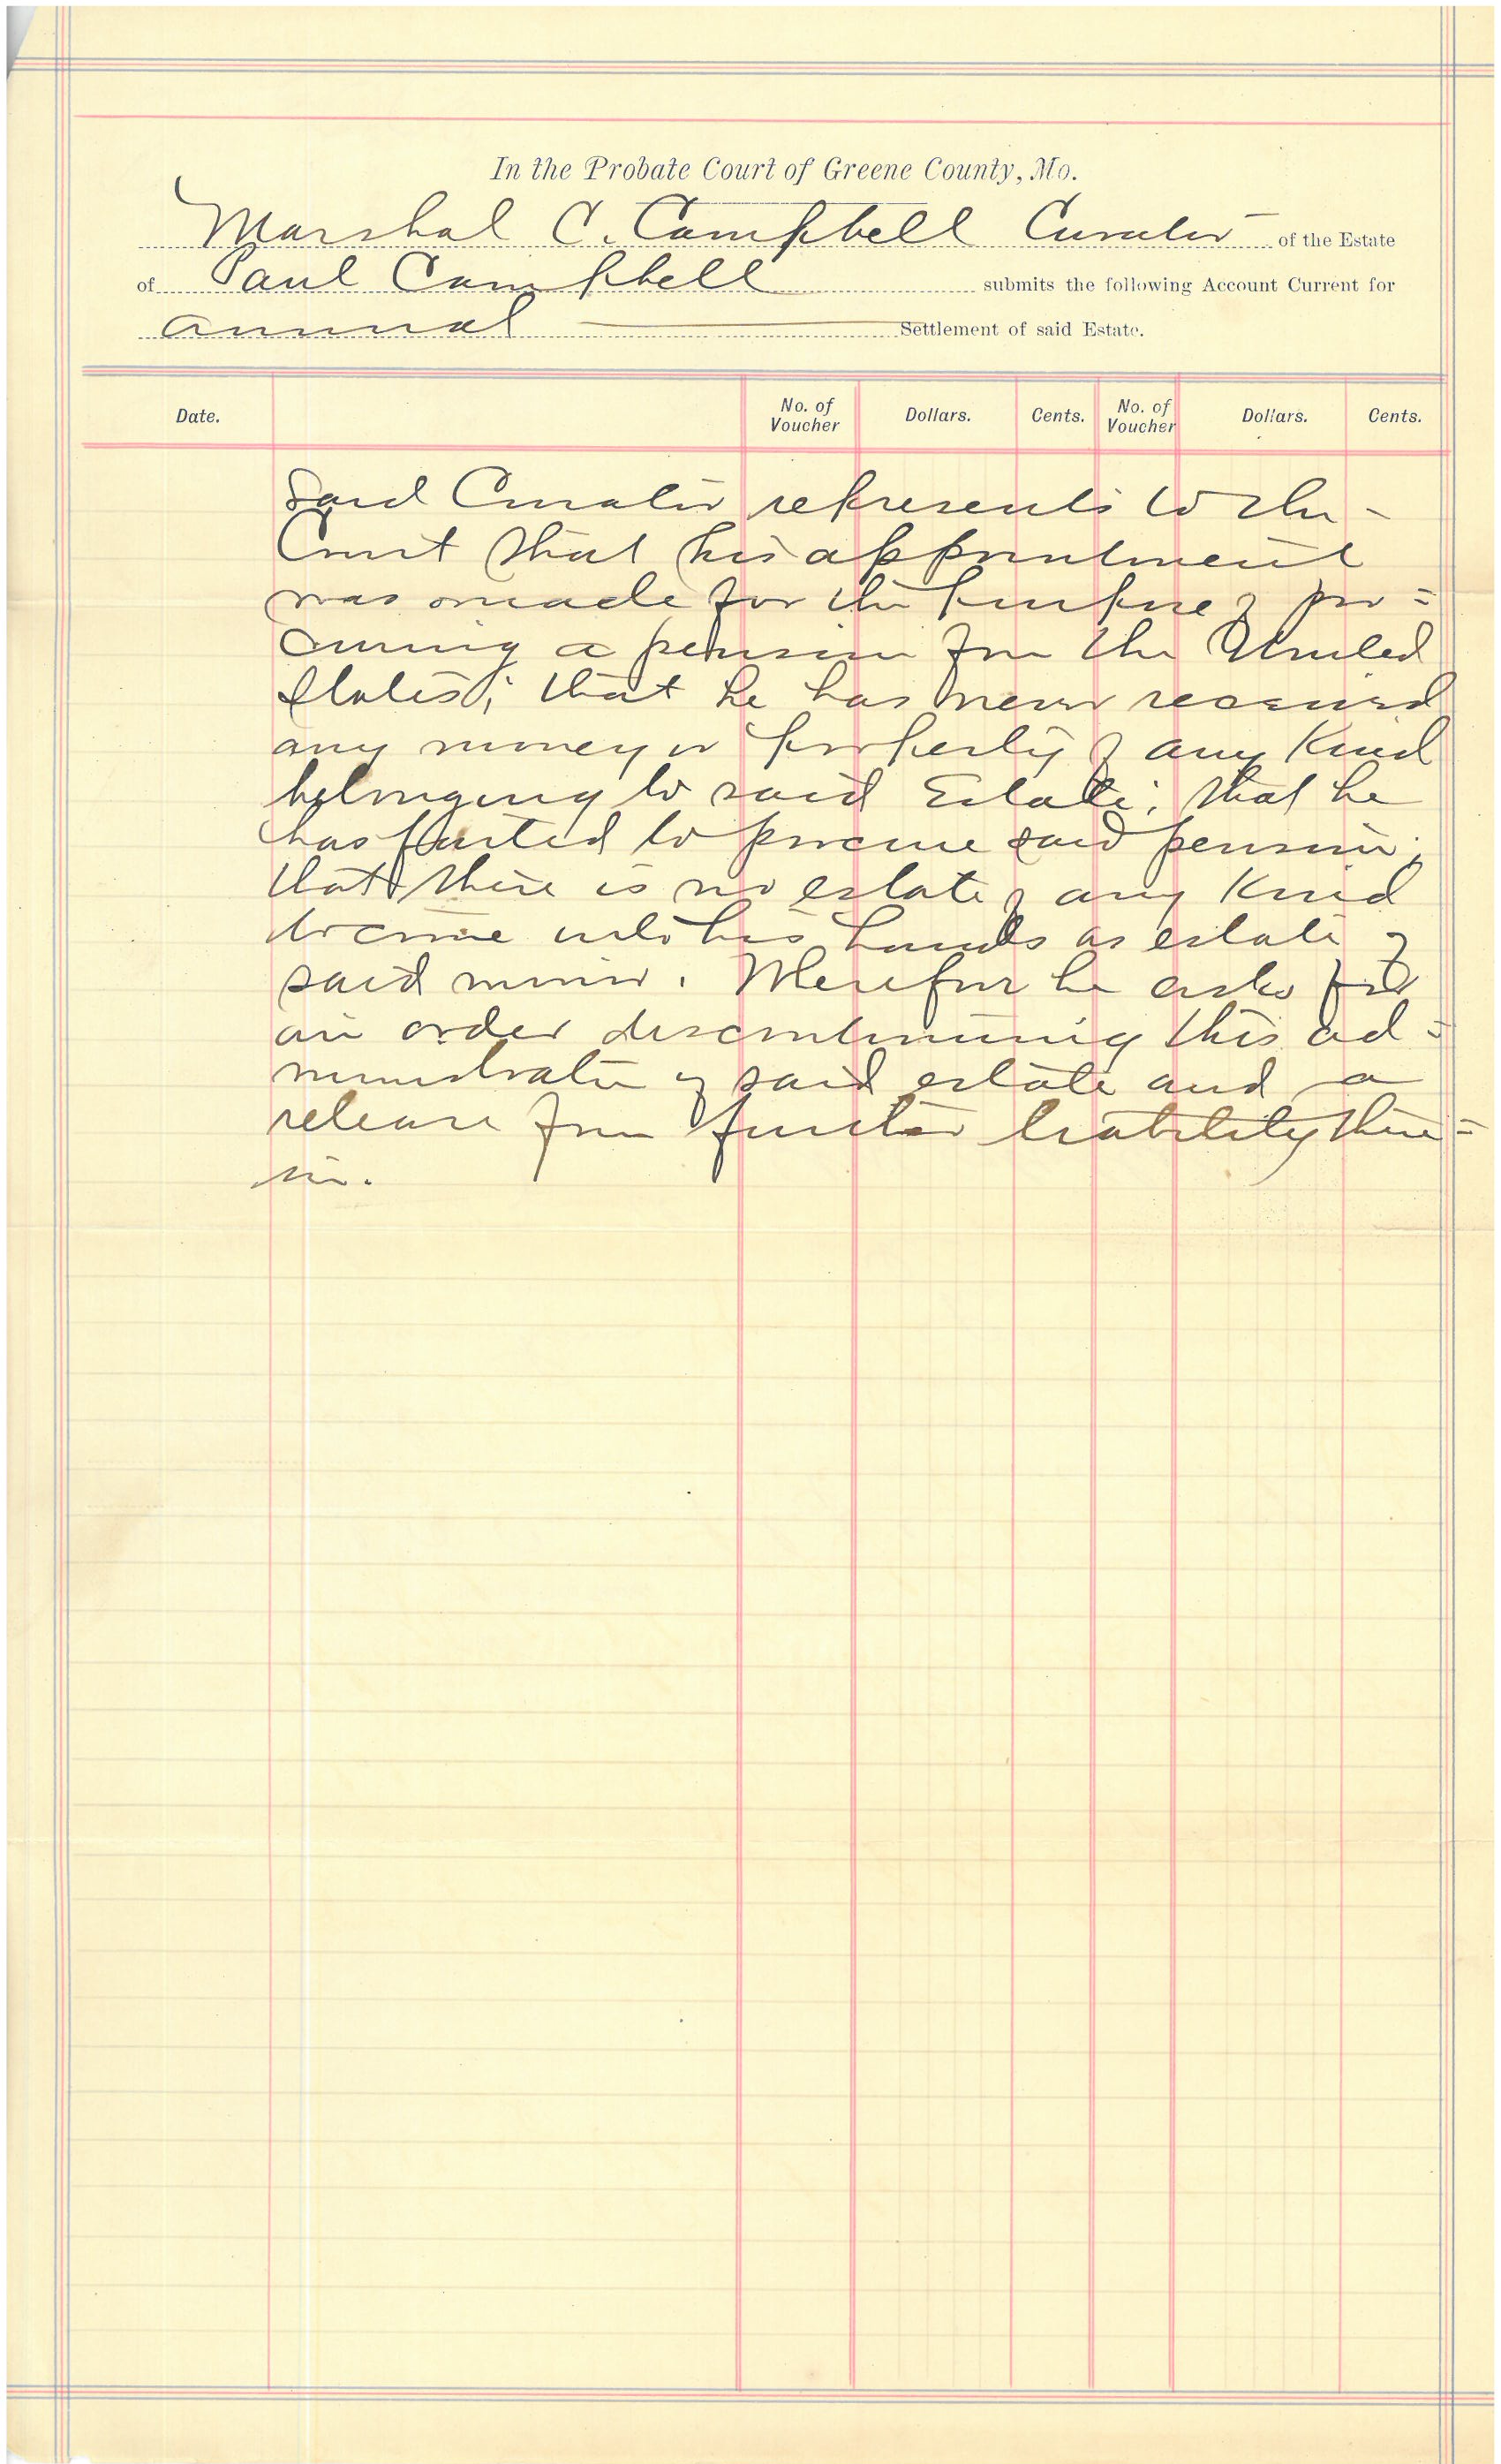 In the Probate Court of Greene County, Mo.
Marshal C. Campbell Curator of the Estate
of Paul Campbell submits the following Account Current for
annual Settlement of said Estate.
Date. No. of Voucher Dollars. Cents. No. of Voucher Dollars. Cents.
Said Curator represents to the
Court that his appointment
was made for the purpose of pro=
curing a pension from the United
States; that he has never received
any money or property of any Kind
belonging to said Estate; that he
has failed to procure said pension;
that there is no estate of any Kind
to come into his hands as estate of
said minor. Wherefore he asks for
an order discontinuing this ad=
ministration of said estate and a
release from further liability there=
in.